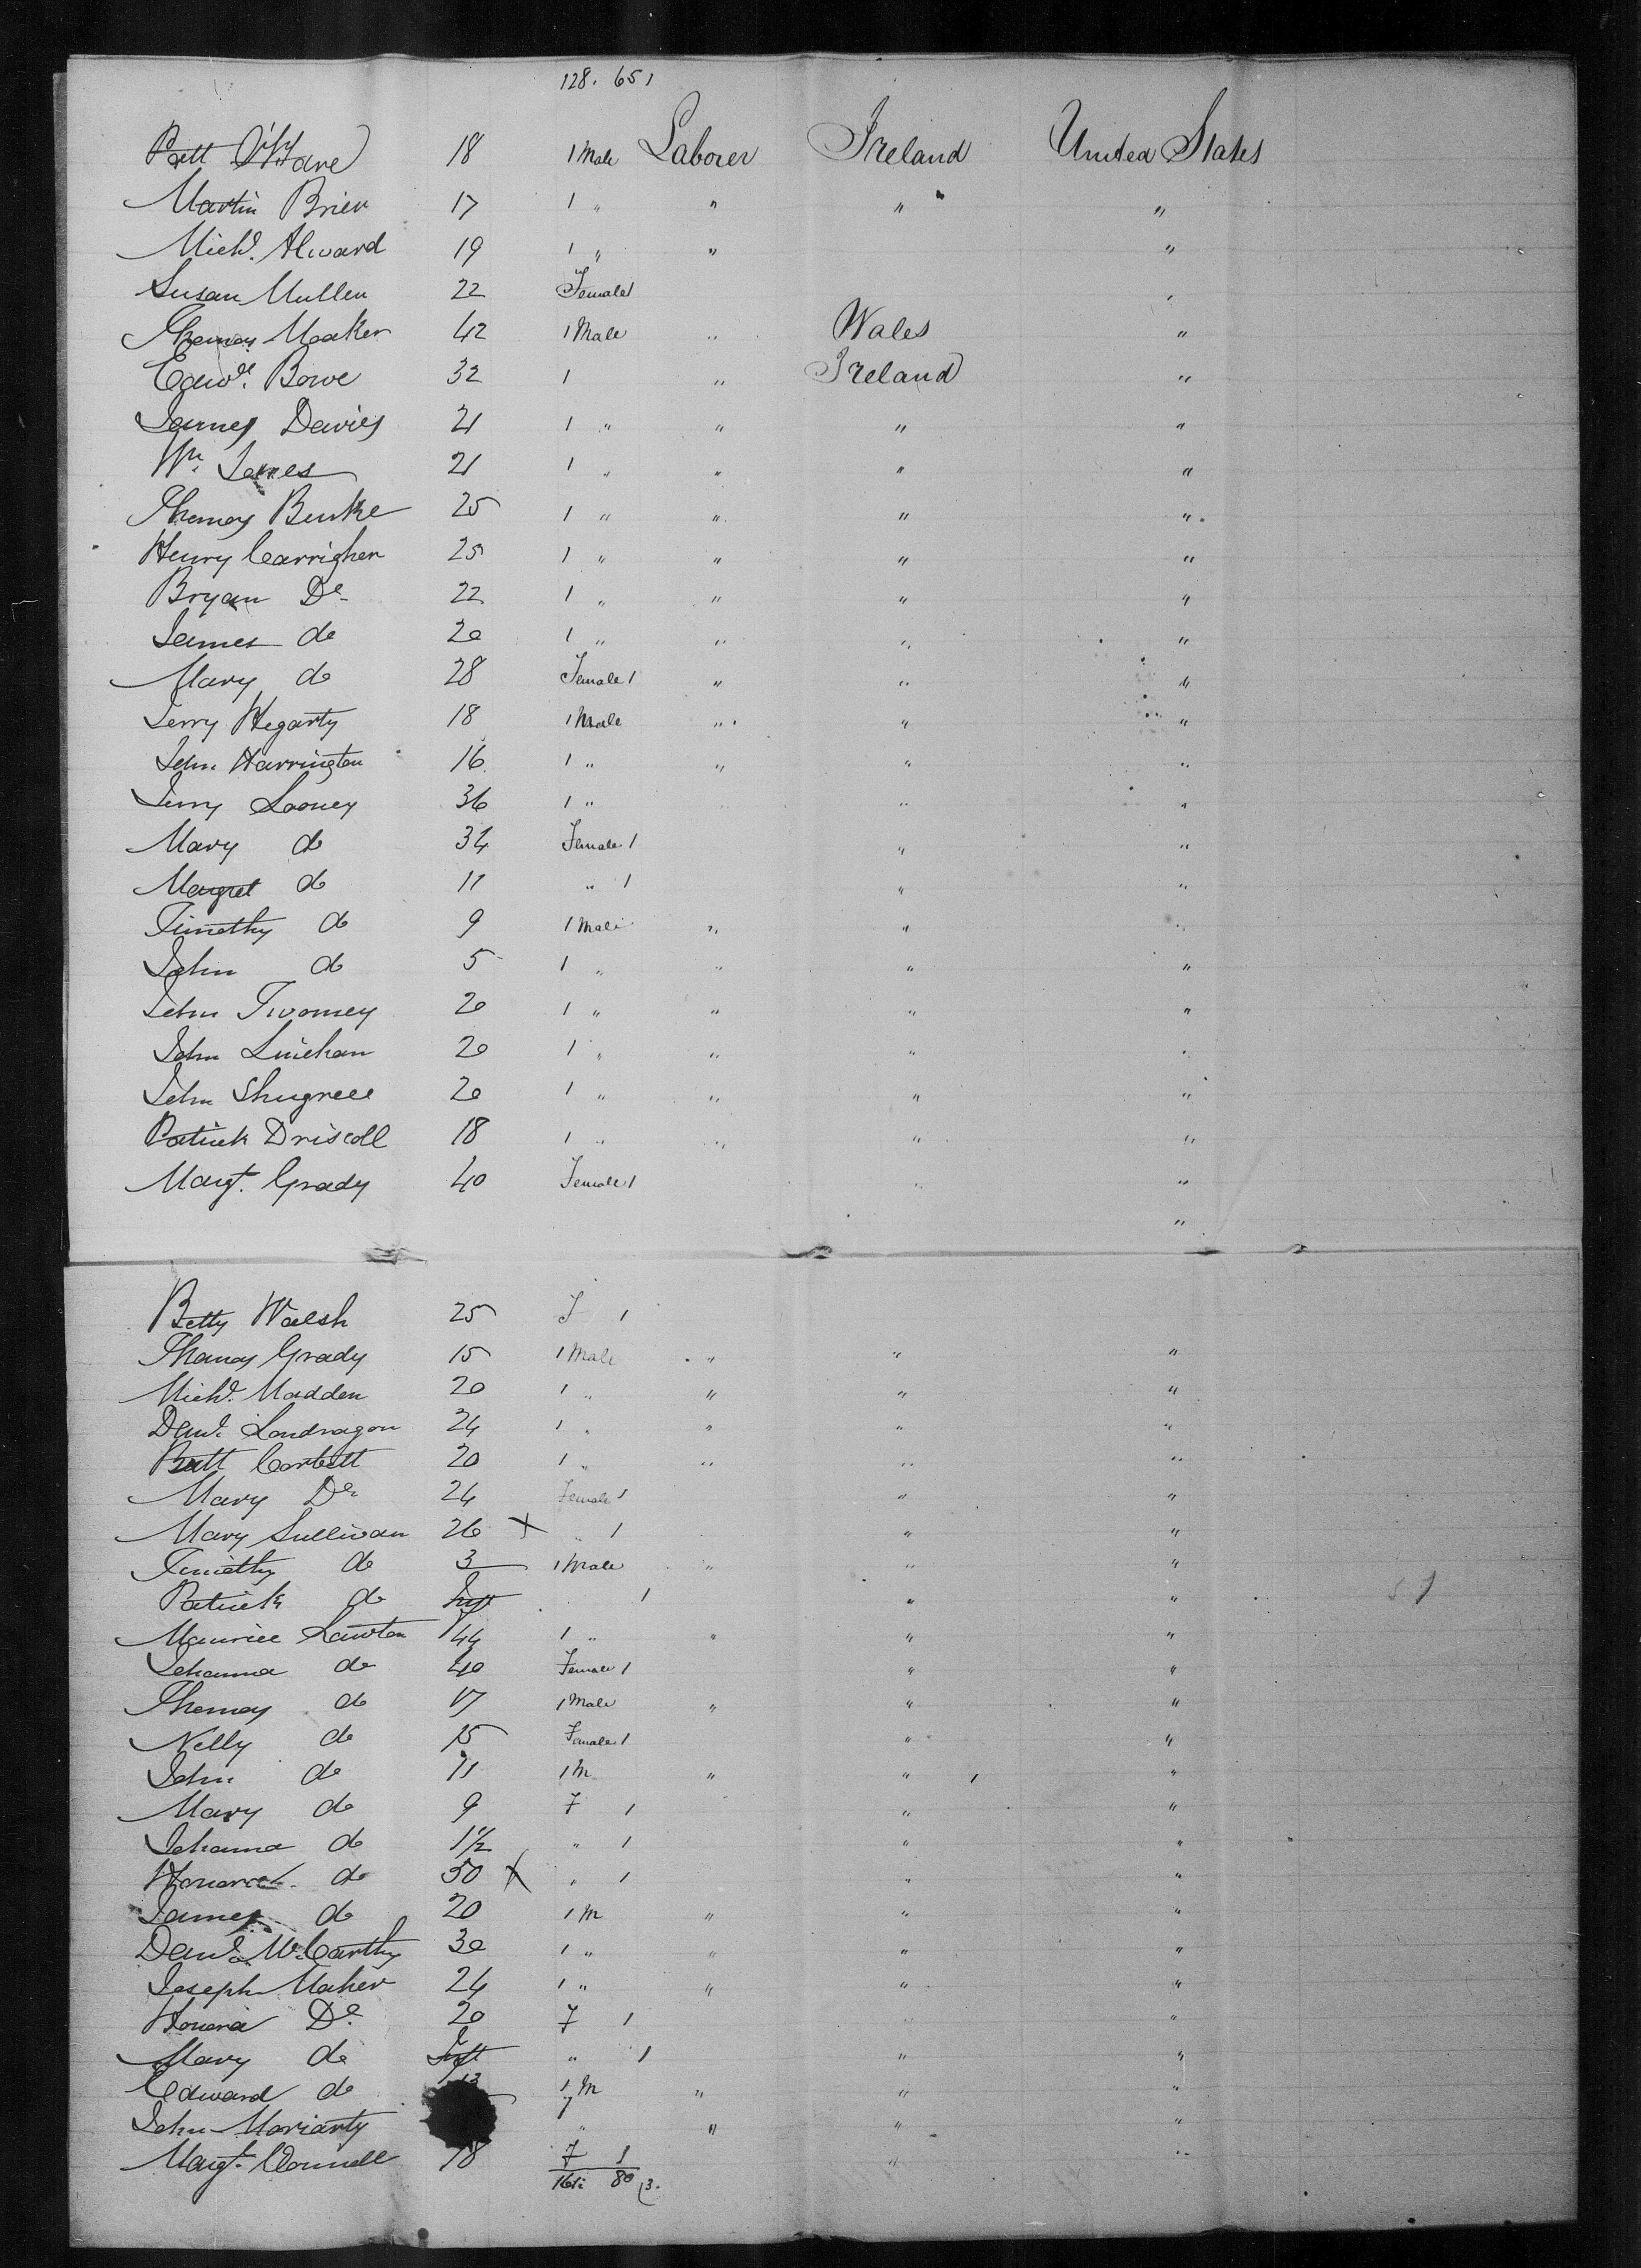 128. 651
Patt O'Hare 18 1 Male Laborer Ireland United States
Martin Brien 17 1 " " " "
Michl. Alward 19 1 " " "
Susan Mullen 22 Female 1 "
Thomas Meaker 42 1 Male " Wales "
Edwd. Bowe 32 1 " Ireland "
James Davies 21 1 " " " "
Wm. James 21 1 " " " "
Thomas Burke 25 1 " " " "
Henry Carrigher 25 1 " " " "
Bryan Do 22 1 " " " "
James do 20 1 " " " "
Mary do 28 Female 1 " " "
Jerry Hegarty 18 1 Male " " "
John Harrington 16 1 " " " "
Jerry Looney 36 1 " " "
Mary do 34 Female 1 " "
Margret do 11 " 1 " "
Timothy do 9 1 Male " " "
John do 5 1 " " " "
John Twomey 20 1 " " " "
John Linehan 20 1 " " " "
John Shugree 20 1 " " " "
Patrick Driscoll 18 1 " " " "
Margt. Grady 40 Female 1 " "
"
Betty Walsh 25 F 1
Thomas Grady 15 1 Male " " "
Michl. Madden 20 1 " " " "
Danl. Londragon 24 1 " " " "
Patt Corbett 20 1 " " " "
Mary Do 24 Female 1 " "
Mary Sullivan 26 X " 1 " "
Timothy do 3 1 Male " " "
Patrick do Inft 1 " "
Maurice Lawton 44 1 " " " "
Johanna do 40 Female 1 " "
Thomas do 17 1 Male " " "
Nelly do 15 Female 1 " "
John do 11 1 M " " "
Mary do 9 F 1 " "
Johanna do 1 1/2 " 1 " "
Honora do 50 X " 1 " "
James do 20 1 M " " "
Danl. McCarthy 30 1 " " " "
Joseph Maher 24 1 " " " "
Honora Do. 20 F 1 "
Mary do Inft " 1 " "
Edward do 1 M " " "
John Moriarty " " " "
Margt. Connell 18 F 1 " "
80 3